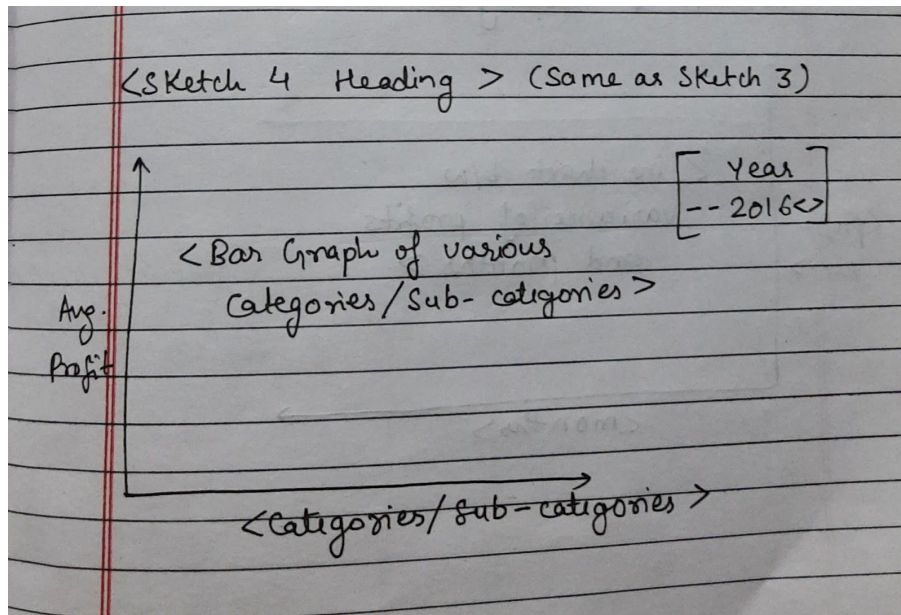 <Sketch 4 Heading> (Same as Sketch 3)
Year
-- 2016<>
<Bar Graph of various
Categories/Sub-categories>
Avg.
Profit
<Categories/Sub-categories>